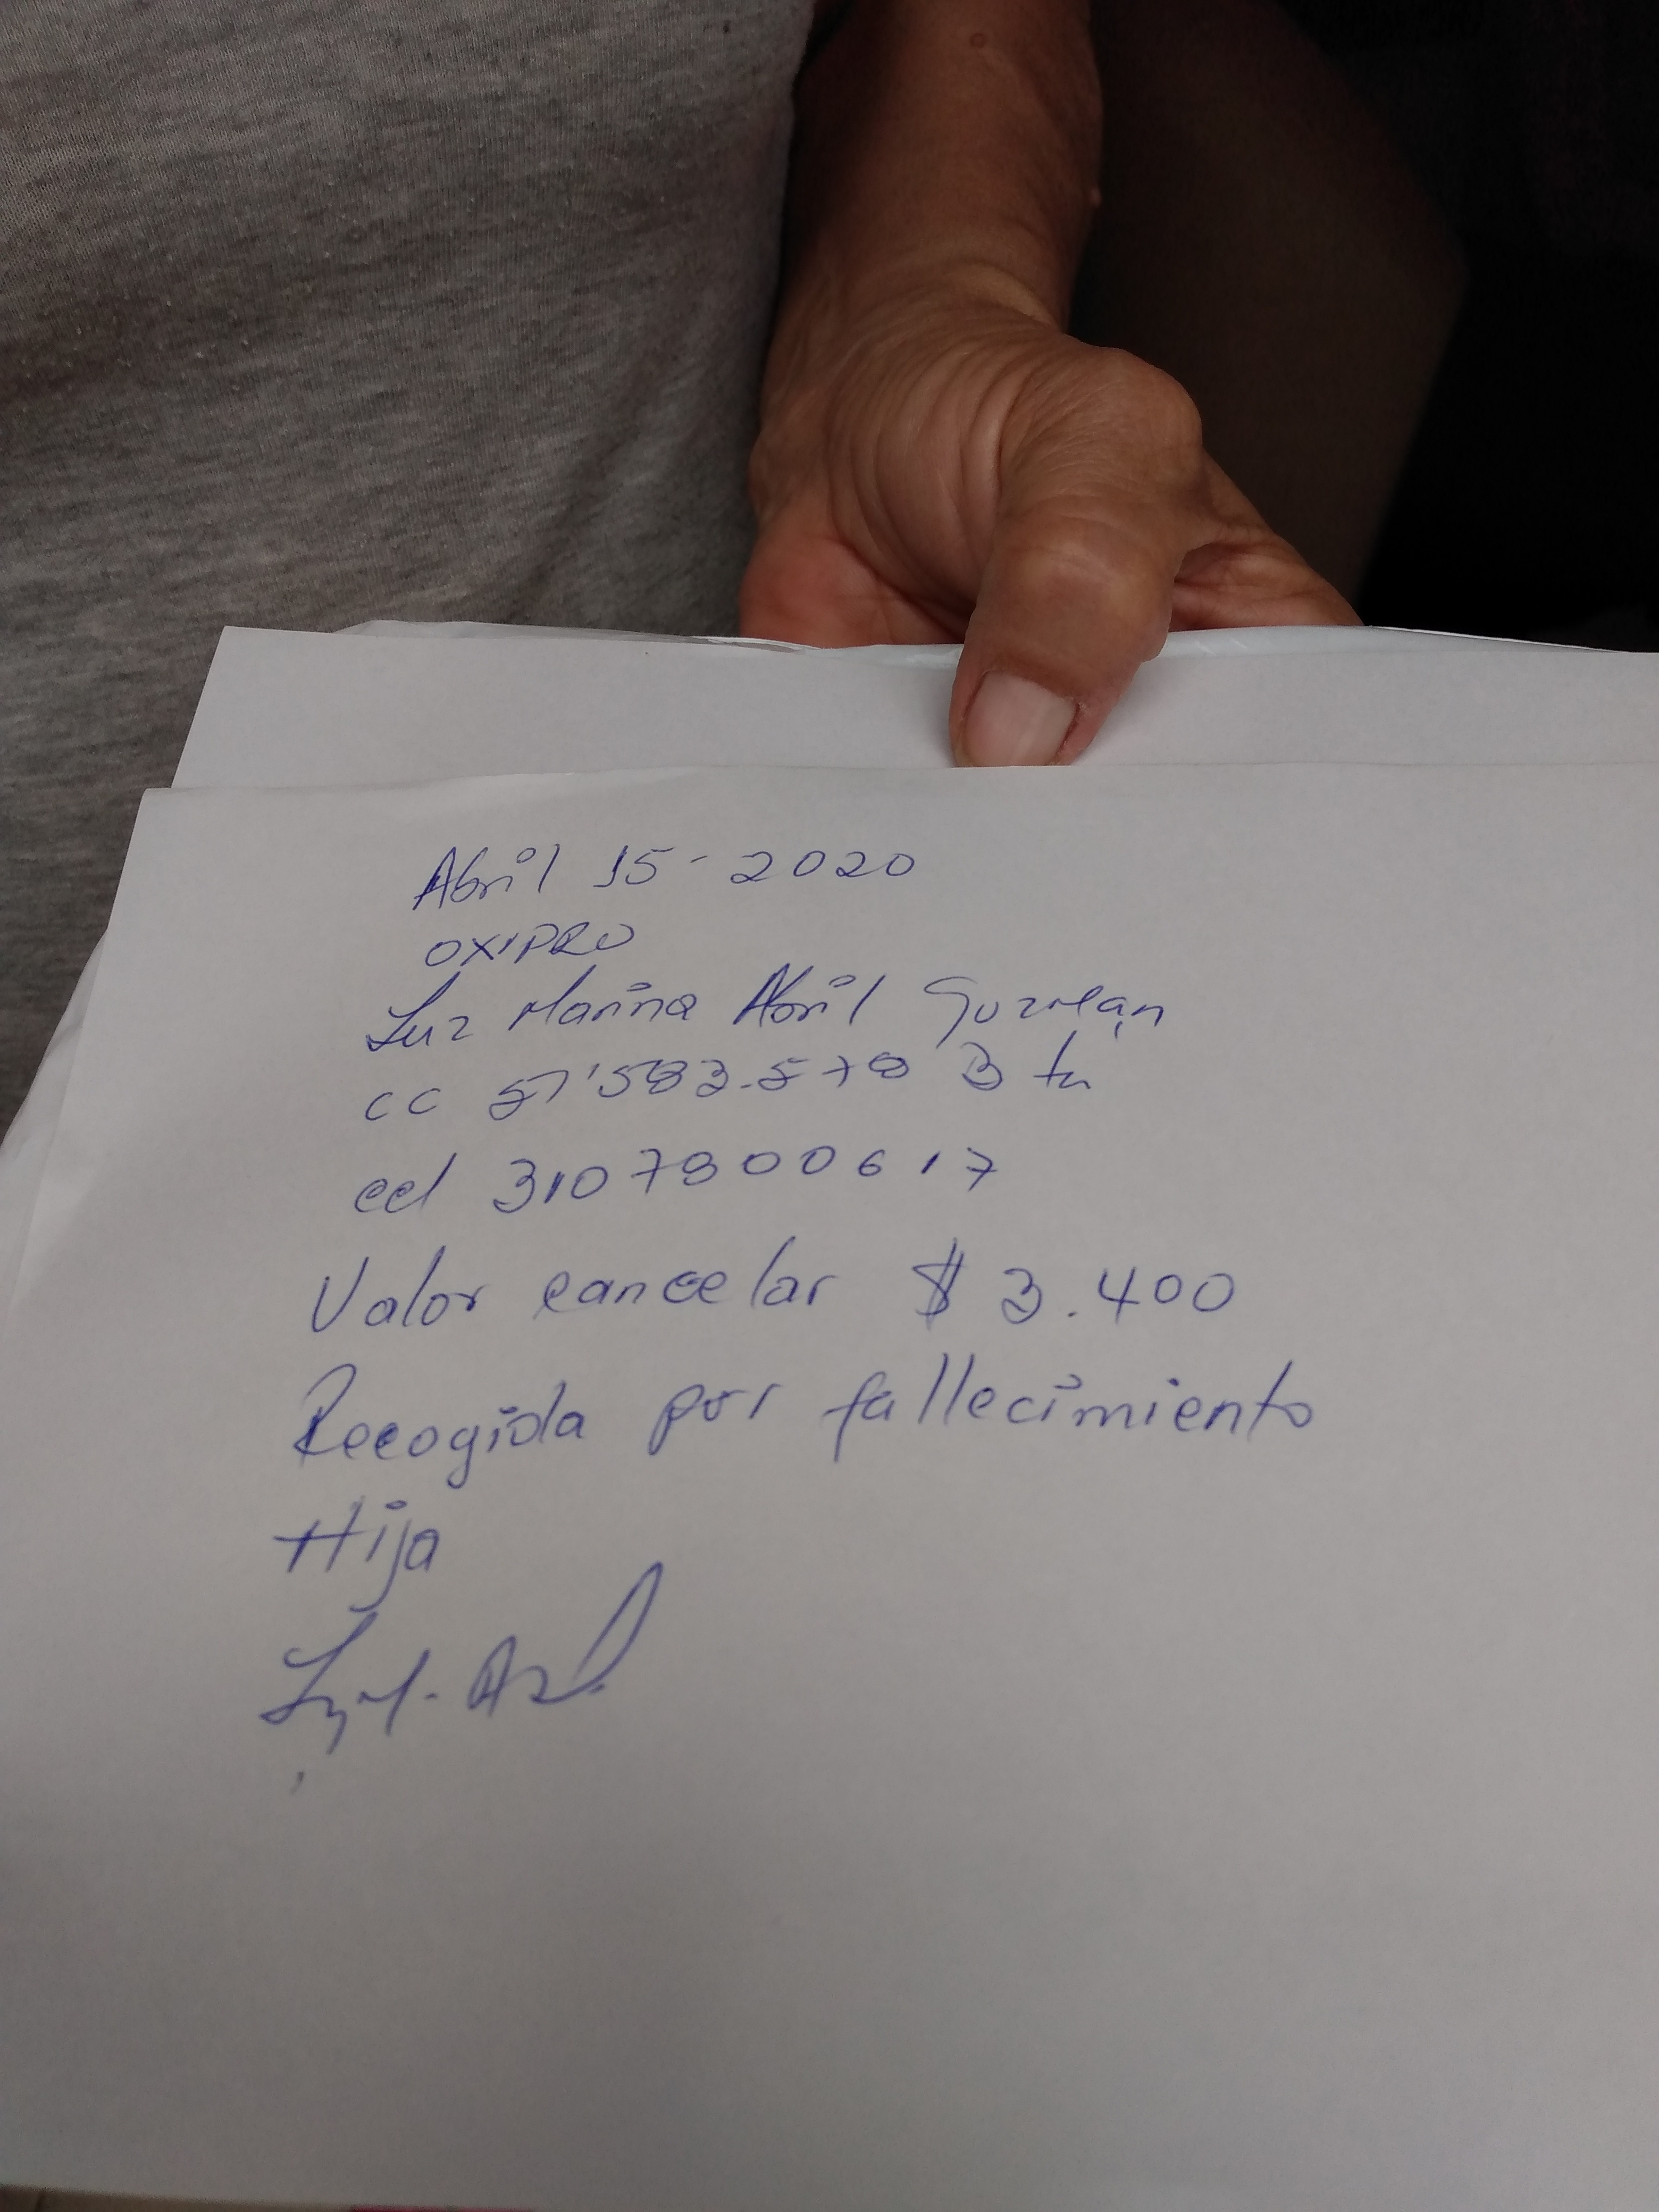 Abril 15-2020
OXIPRO
Luz Marina Abril Guzmán
CC 51'583.578 Bta
cel 3107800617
Valor cancelar $ 3.400
Recogida por fallecimiento
Hija